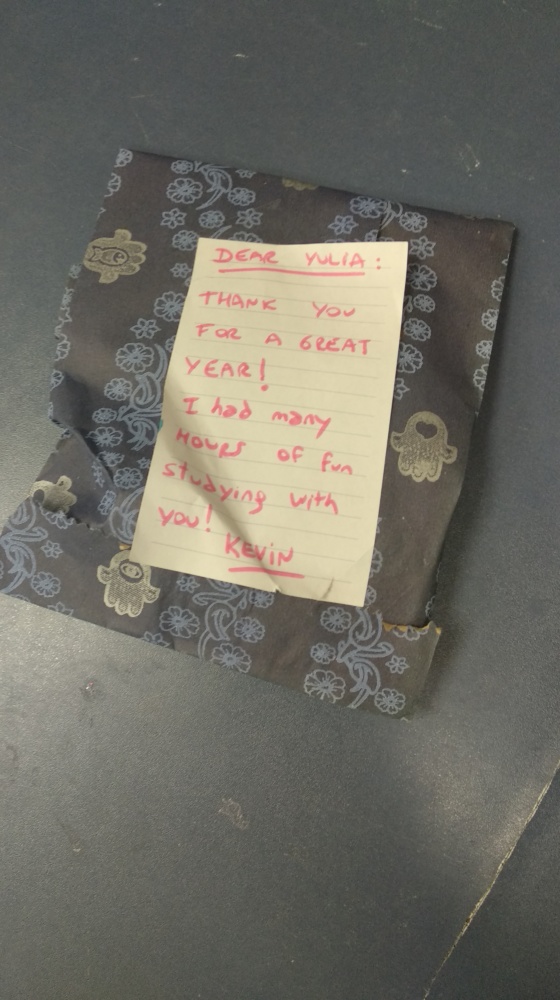 DEAR YULIA:
THANK YOU
FOR A GREAT
YEAR!
I had many
HOURS of fun
studying with
you!
KEVIN